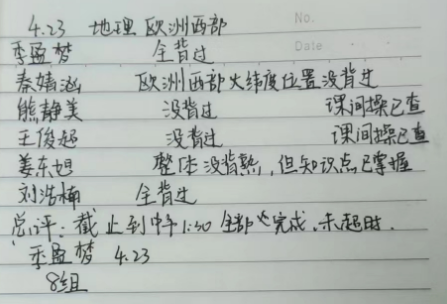 No.
4.23 地理 欧洲西部
Date
季盈梦 全背过
秦婧涵 欧洲西部 火纬度位置没背过
熊静美 没背过 课间操已查
王俊超 没背过 课间操已查
姜东旭 整体没背熟,但知识点已掌握
刘浩楠 全背过
总评:截止到中午1:30 全部 完成,未超时.
季盈梦 4.23
8组